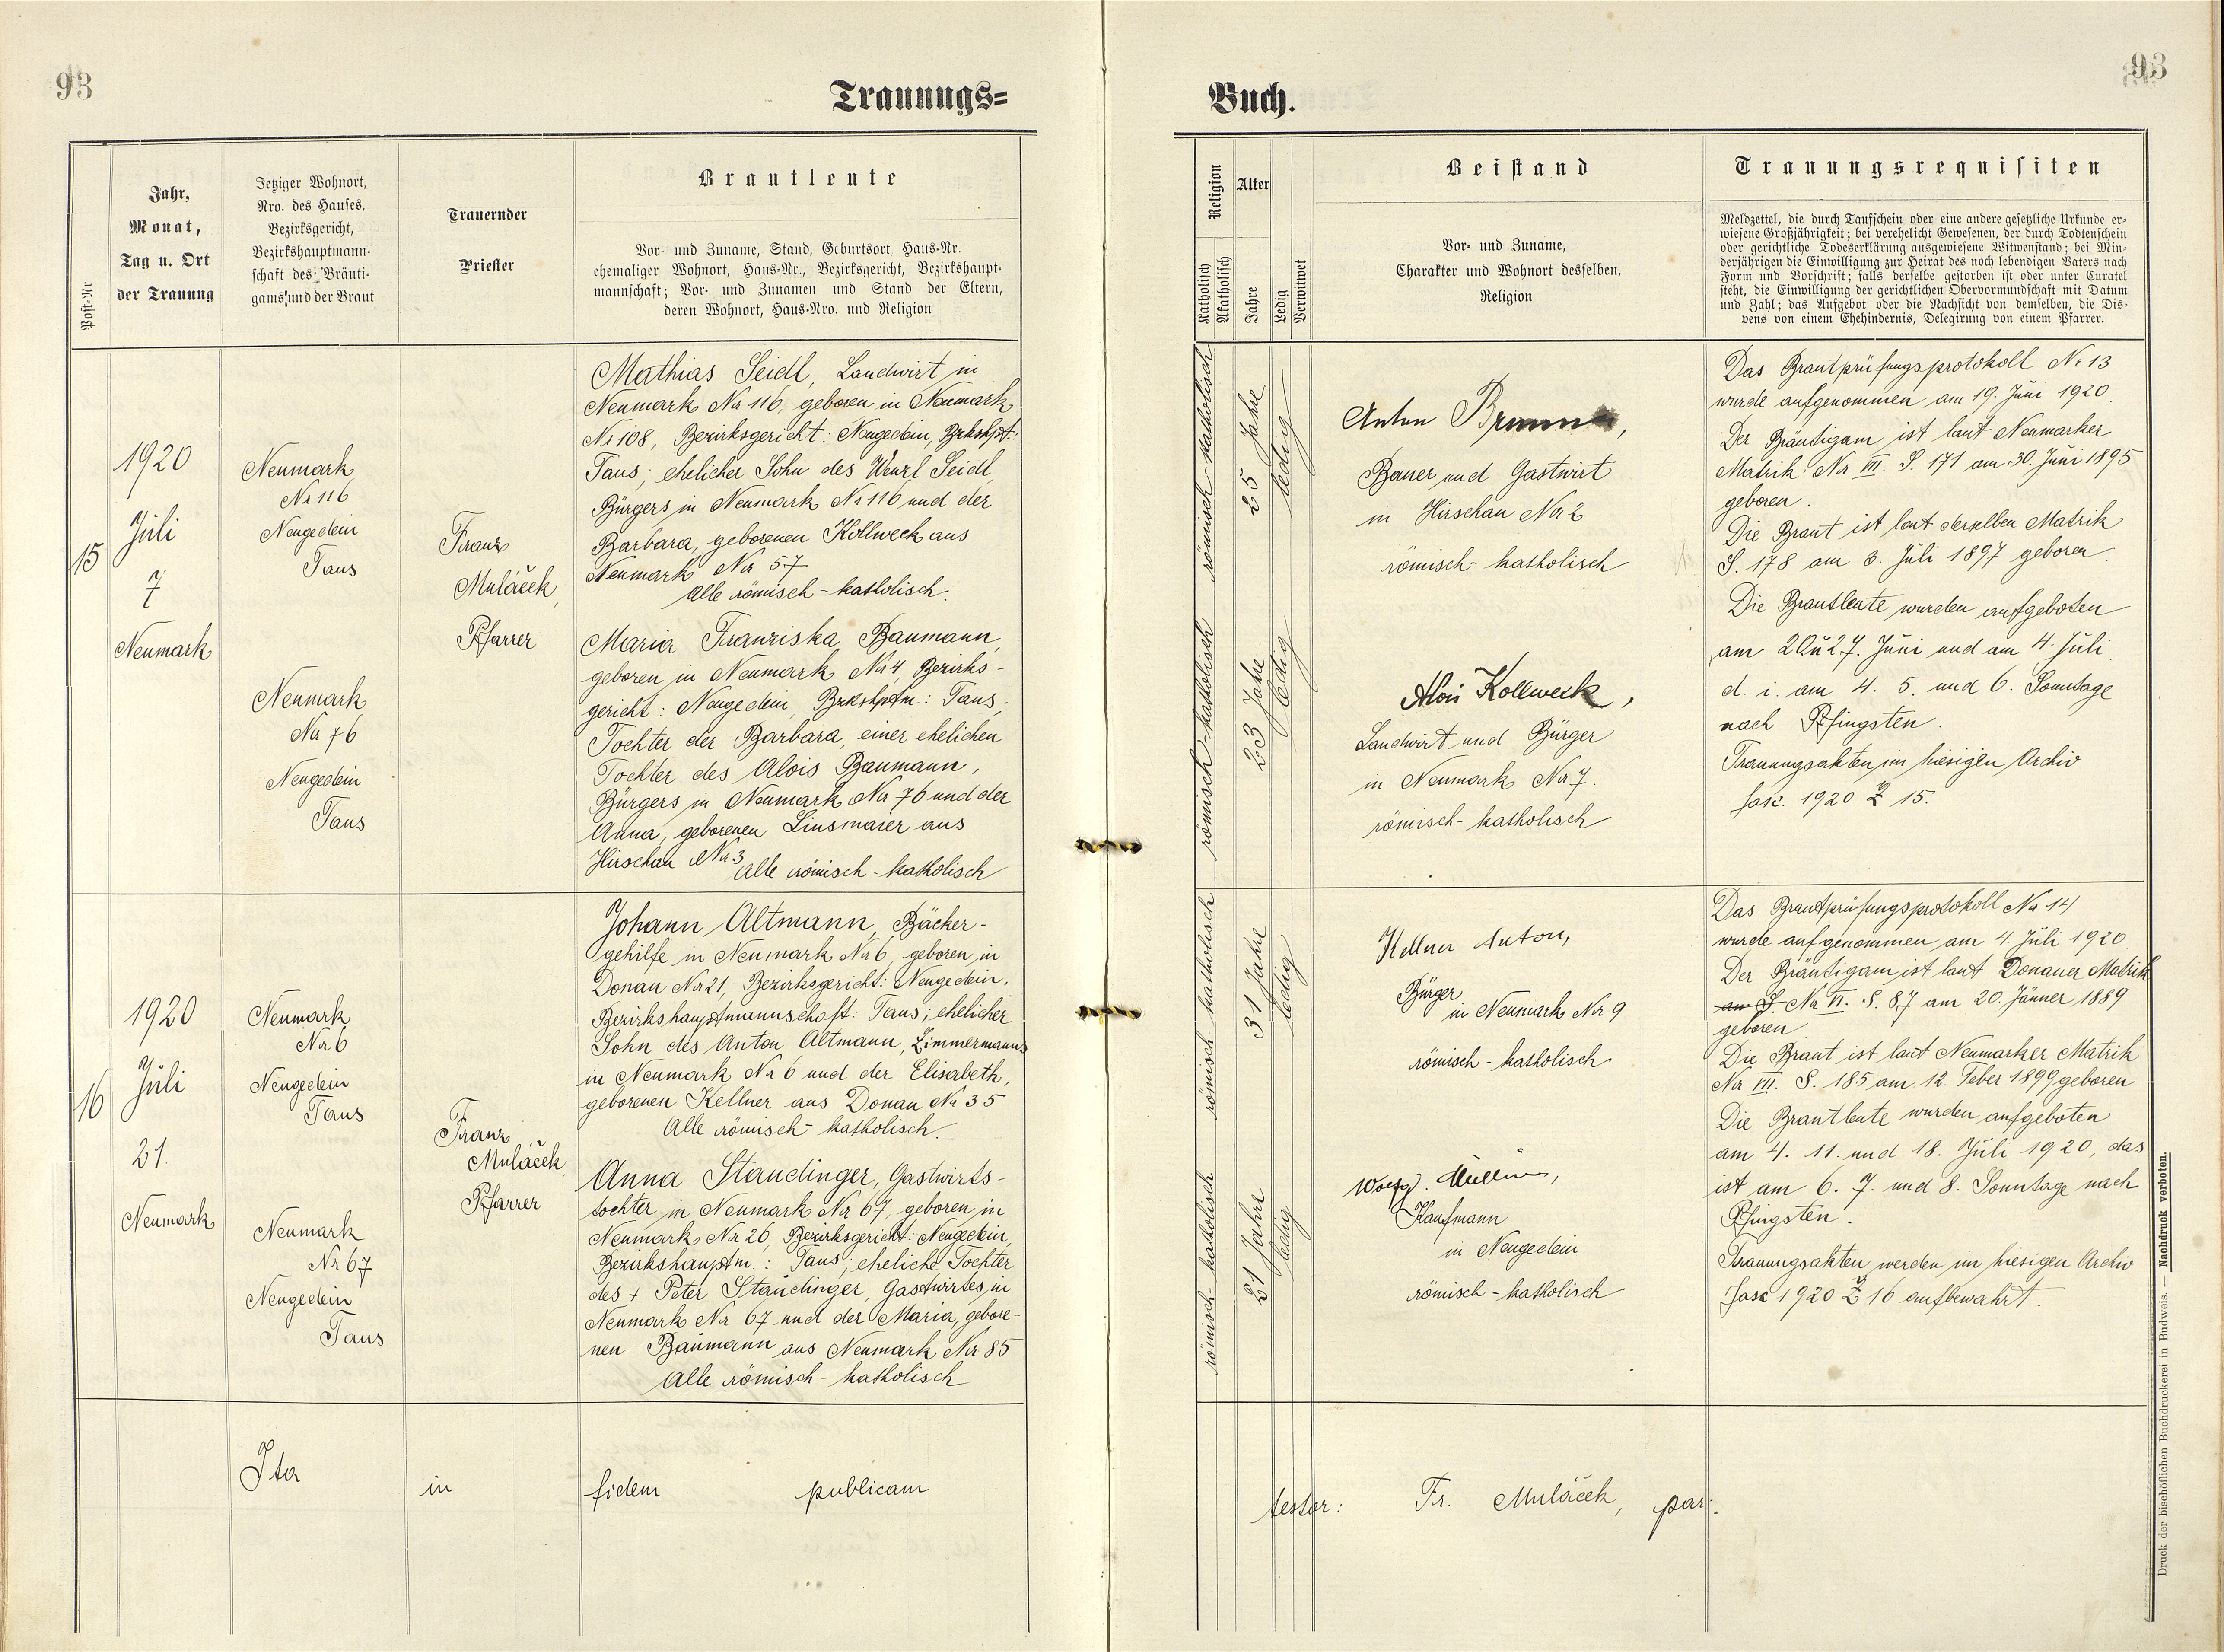 93
93
Trauungs=
Buch.
Post-Nr
Jahr,
Monat,
Tag u. Ort
der Trauung
Jetziger Wohnort,
Nro. des Hauses,
Bezirksgericht,
Bezirkshauptmann-
schaft des Bräuti-
gams und der Braut
Trauernder
Priester
Brautleute
Vor- und Zuname, Stand, Geburtsort, Haus-Nr.
ehemaliger Wohnort, Haus-Nr., Bezirksgericht, Bezirkshaupt-
mannschaft; Vor- und Zunamen und Stand der Eltern,
deren Wohnort, Haus-Nro. und Religion
Religion
Katholisch
Akatholisch
Alter
Jahre
Ledig
Verwitwet
Beistand
Vor- und Zuname,
Charakter und Wohnort desselben,
Religion
Trauungsrequisiten
Meldzettel, die durch Taufschein oder eine andere gesetzliche Urkunde er-
wiesene Großjährigkeit; bei verehelicht Gewesenen, der durch Todtenschein
oder gerichtliche Todeserklärung ausgewiesene Witwenstand; bei Min-
derjährigen die Einwilligung zur Heirat des noch lebendigen Vaters nach
Form und Vorschrift; falls derselbe gestorben ist oder unter Curatel
steht, die Einwilligung der gerichtlichen Obervormundschaft mit Datum
und Zahl; das Aufgebot oder die Nachsicht von demselben, die Dis-
pens von einem Ehehindernis, Delegirung von einem Pfarrer.
15
1920
Juli
7
Neumark
Neumark
Nr 116
Neugedein
Taus
Neumark
Nr 76
Neugedein
Taus
Franz
Muláček,
Pfarrer
Mathias Seidl, Landwirt in
Neumark Nr 116, geboren in Neumark
Nr 108, Bezirksgericht: Neugedein, Bzkshpt.:
Taus; ehelicher Sohn des Wenzl Seidl,
Bürgers in Neumark Nr 116 und der
Barbara, geborenen Kollweck aus
Neumark Nr 57
Alle römisch-katholisch.
Maria Franziska Baumann,
geboren in Neumark Nr 4, Bezirks-
gericht: Neugedein, Bzkshptm.: Taus;
Tochter der Barbara, einer ehelichen
Tochter des Alois Baumann,
Bürgers in Neumark Nr 76 und der
Anna, geborenen Linsmaier aus
Hirschau Nr 3
Alle römisch-katholisch
römisch-katholisch
25 Jahre
ledig
römisch-katholisch
23 Jahre
ledig
Anton
Bauer und Gastwirt
in Hirschau Nr 2
römisch-katholisch
Alois Kollweck,
Landwirt und Bürger
in Neumark Nr 7.
römisch-katholisch
Das Brautprüfungsprotokoll Nr 13
wurde aufgenommen am 19. Juni 1920.
Der Bräutigam ist laut Neumarker
Matrik Nr VII. S. 171 am 30. Juni 1895
geboren.
Die Braut ist laut derselben Matrik
S. 178 am 3. Juli 1897 geboren.
Die Brautleute wurden aufgeboten
am 20. u 27. Juni und am 4. Juli
d. i. am 4. 5. und 6. Sonntage
nach Pfingsten.
Trauungsakten im hiesigen Archiv
fasc. 1920 Z 15.
16
1920
Juli
21.
Neumark
Neumark
Nr 6
Neugedein
Taus
Neumark
Nr 67
Neugedein
Taus
Franz
Muláček,
Pfarrer
Johann Altmann, Bäcker-
gehilfe in Neumark Nr 6, geboren in
Donau Nr 21, Bezirksgericht: Neugedein,
Bezirkshauptmannschaft: Taus; ehelicher
Sohn des Anton Altmann, Zimmermanns
in Neumark Nr 6 und der Elisabeth,
geborenen Kellner aus Donau Nr 35
Alle römisch-katholisch.
Anna Staudinger, Gastwirts-
tochter in Neumark Nr 67, geboren in
Neumark Nr 26, Bezirksgericht: Neugedein,
Bezirkshauptm.: Taus; eheliche Tochter
des + Peter Staudinger, Gastwirtes in
Neumark Nr 67 und der Maria, gebore-
nen Baumann aus Neumark Nr 85
Alle römisch-katholisch
römisch-katholisch
31 Jahre
ledig
römisch-katholisch
21 Jahre
ledig
Kellner Anton,
Bürger
in Neumark Nr 9
römisch-katholisch
Kaufmann
in Neugedein
römisch-katholisch
Das Brautprüfungsprotokoll Nr 14
wurde aufgenommen am 4. Juli 1920
Der Bräutigam ist laut Donauer Matrik
an S. Nr VI. S. 87 am 20. Jänner 1889
geboren
Die Braut ist laut Neumarker Matrik
Nr VII. S. 185 am 12. Feber 1899 geboren
Die Brautleute wurden aufgeboten
am 4. 11. und 18. Juli 1920, das
ist am 6. 7. und 8. Sonntage nach
Pfingsten.
Trauungsakten werden im hiesigen Archiv
Fasc 1920 Z 16 aufbewahrt.
Ita in fidem publicam testor: Fr. Muláček, par.
Druck der bischöflichen Buchdruckerei in Budweis. — Nachdruck verboten.